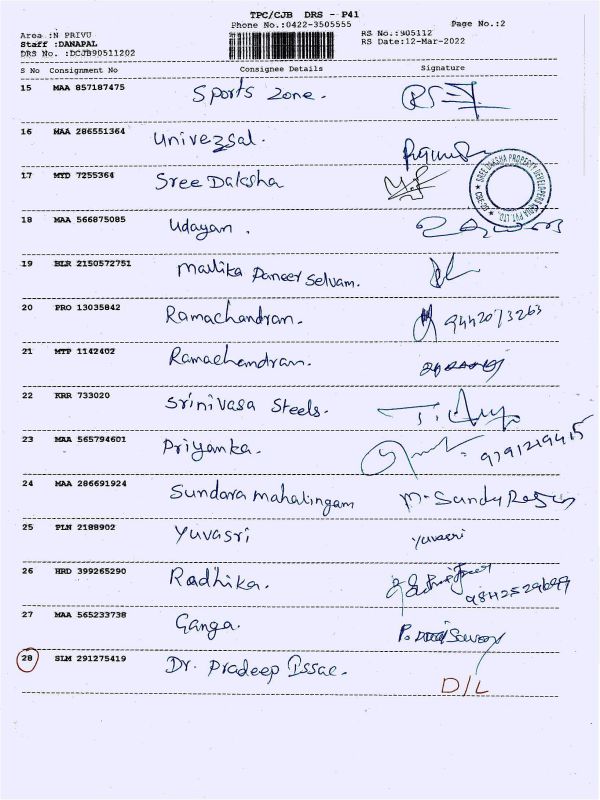 TPC/CJB DRS - P41
Phone No.:0422-3505555 Page No.:2
Area :N PRIVU RS No.:905112
Staff :DANAPAL RS Date:12-Mar-2022
DRS No. :DCJB90511202
S No Consignment No Consignee Details Signature
15 MAA 857187475 Sports Zone.
16 MAA 286551364 Univezsal.
17 MTD 7255364 Sree Daksha
SREE DAKSHA PROPERTY DEVELOPERS
18 MAA 566875085 Udayan.
19 BLR 2150572751 Mallika Paneer Selvam.
20 PRO 13035842 Ramachandran. 9442073263
21 MTP 1142402 Ramachandran.
22 KRR 733020 Srinivasa Steels.
23 MAA 565794601 Priyanka. 9791219415
24 MAA 286691924 Sundara mahalingam
25 PLN 2188902 Yuvasri yuvasri
26 HRD 399265290 Radhika.
27 MAA 565233738 Ganga.
28 SLM 291275419 Dr. Pradeep Issac. D/L